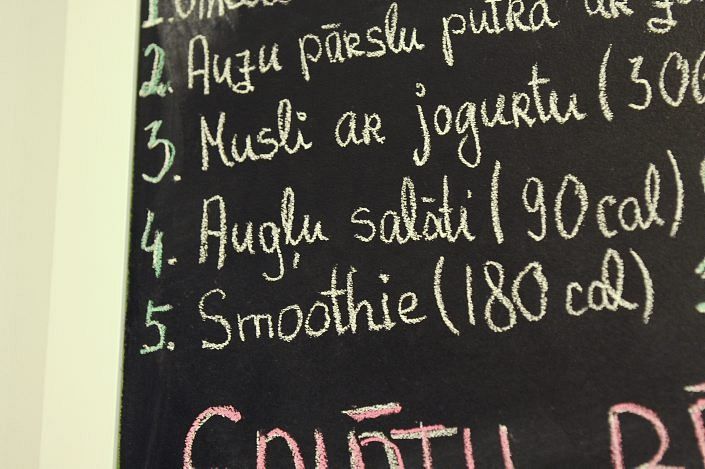 2. Auzu pārslu putra ar
3. Musli ar jogurtu (300
4. Augļu salāti (90 cal)
5. Smoothie (180 cal)